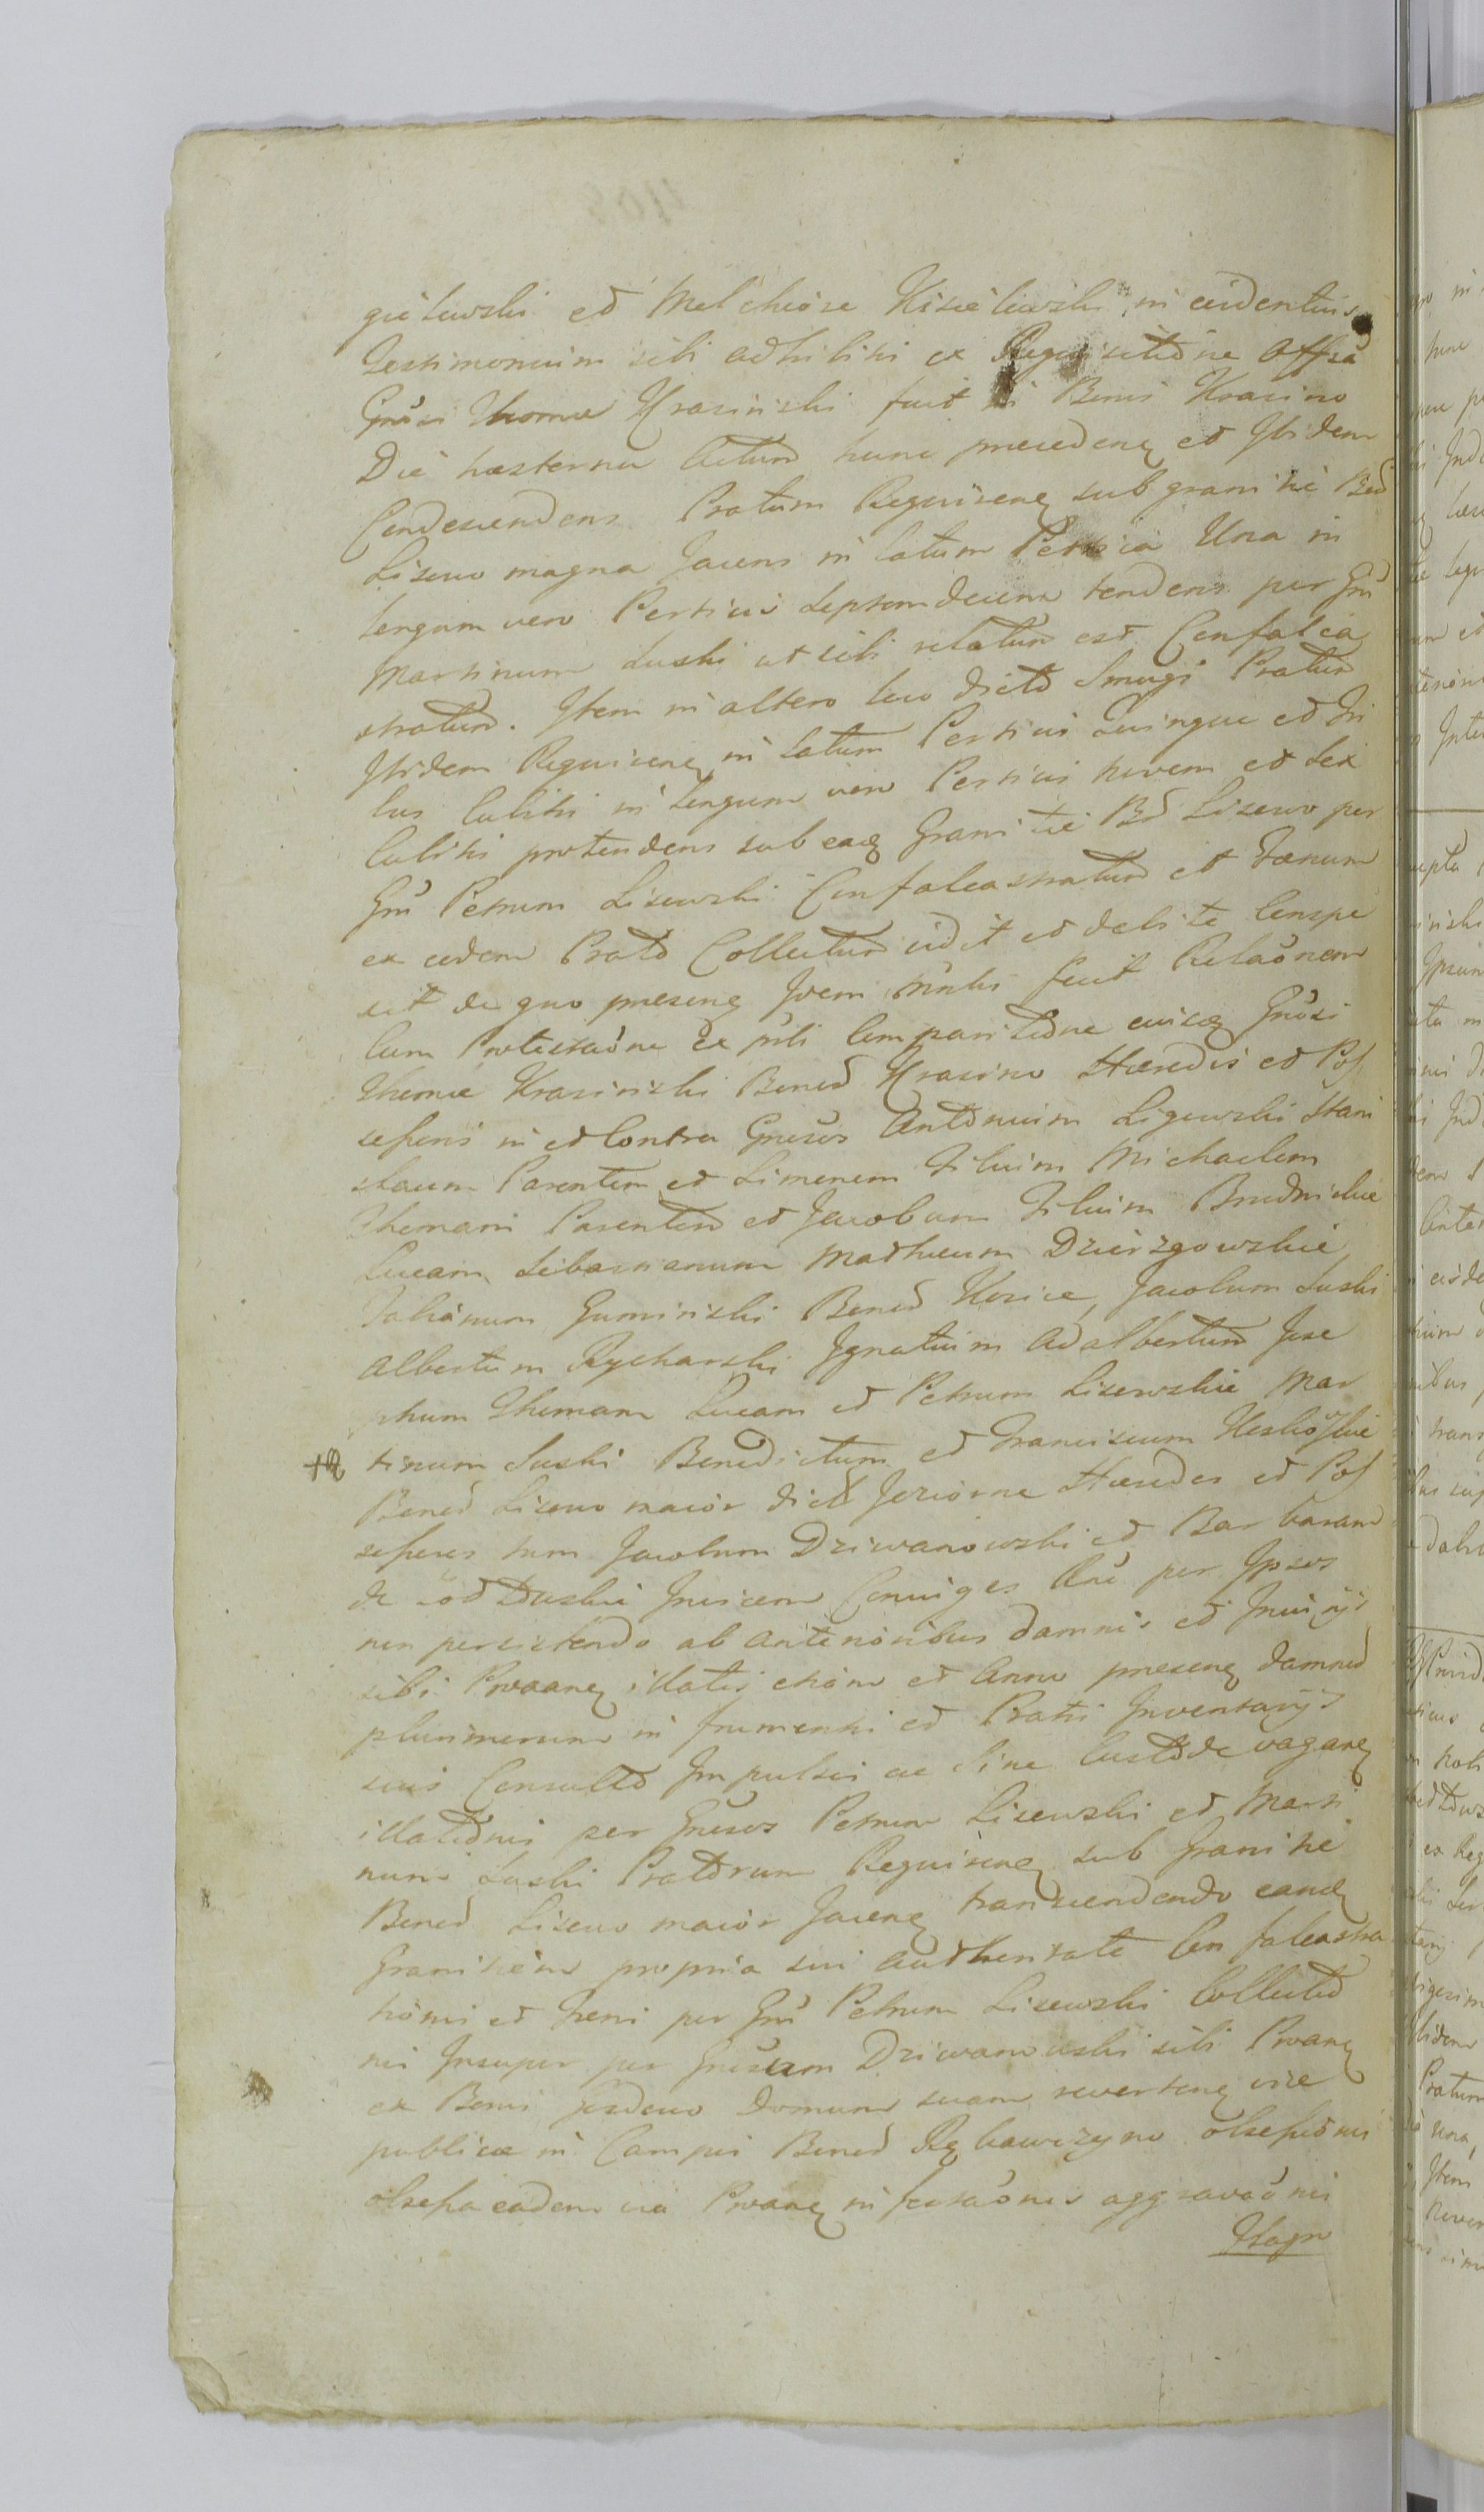 gielewski et Melchiore Kisielewski in evidentius
Testimonium sibi adhibiti ex Requisitione Offrâ
Grosi Thomæ Krasinski fuit in Bonis Krasino
Die hæsterna Actum hunc præcedenꝫ et Ibidem
Condescendens Pratum Requirenꝫ sub granitie Bnd
Lisewo magna Jacens in latum Pertica Una in
longum vero Perticis Septemdecem tendens per Gnu
Martinum Suski ut sibi relatum est Confalca
stratum. Item in altero loco dicto Smugi Pratum
Ibidem Requirenꝫ in latum Perticis Quinque et Tri
bus Cubitis in longum vero Perticis novem et Sex
Cubitis protendens sub eaqꝫ Granitie Bd Lisewo per
Gnu Petrum Lisewski Confalcastratum et Fænum
ex eodem Prato Collectum vidit et debite Conspe
xit de quo præsenꝫ Idem Mnlis fecit Relaônem
Cum Protestaône ex prti Comparitione eiusqꝫ Grosi
Thomæ Krasinski Bonod Krasino Hæredis et Pos
sessoris in et Contra Grosos Antonium Ligowski Stani
slaum Parentem et Simonem Filium Michaelem
Thomam Parentem et Jacobum Filium Brudnickie
Lucam Sebastianum Mathæum Dzierzgowskie
Fabianum Guminski Bonod Kosice, Jacobum Suski
Albertum Rycharski Ignatium Adalbertum Jose
phum Thomam Lucam et Petrum Lisewskie Mar
tinum Suski Benedictum et Franciscum Koskowskie
Bonod Lisewo maior dict Jeziorne Hæredes et Pos
sessores tum Jacobum Dziwanowski et Barbaram
de Invicem Coniuges Unâ per Ipsos
non persistendo ab anterioribus damnis et Iniurijs
sibi Proanꝫ illatis etiam et Anno præsenꝫ damnod
plurimorum in frumentis et Pratis Inventarijs
suis Consulto Impulsis ac Sine Custode vaganꝫ
illationis per Grosos Petrum Lisewski et Marti
num Suski Pratorum Requirenꝫ sub Granitie
Bonod Lisewo maior Jacenꝫ transcendendo eandꝫ
Granitiem propria sui Authoritate Confalcastra
tionis et Feni per Gnu Petrum Lisewski Collectio
nis Insuper per Grosum Dziwanowski sibi Proanꝫ
ex Bonis Domum suam revertenꝫ viæ
publicæ in Campis Bonod obsessionis
obsessa eadem via Proanꝫ infestaônis aggravaônis
Itaqꝫ